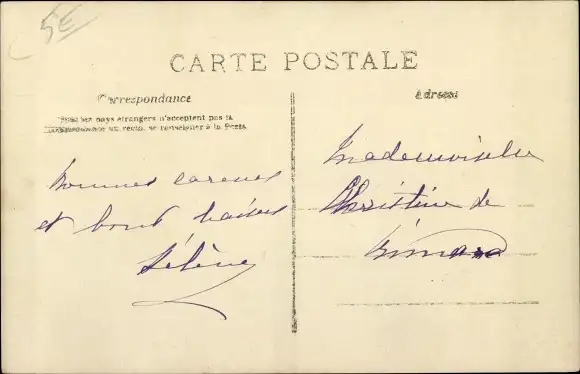 5E
CARTE POSTALE
Correspondance
Tous les pays étrangers n'acceptent pas la
correspondance au recto, se renseigner à la Poste
Bonnes caresses
et bons baisers
Hélène
Adresse
Mademoiselle
Christine de